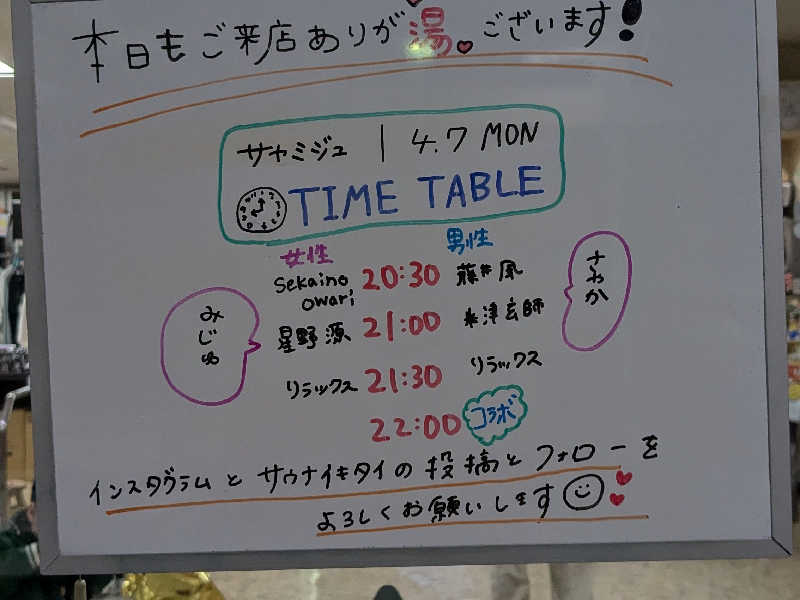 本日もご来店ありが湯ございます!
サャミジュ | 4.7 MON
TIME TABLE
女性 男性
Sekaino owari 20:30 藤井風
さゎか
みじゅ
星野源 21:00 米津玄師
リラックス 21:30 リラックス
22:00 コラボ
インスタグラムとサウナイキタイの投稿とフォローを
よろしくお願いします